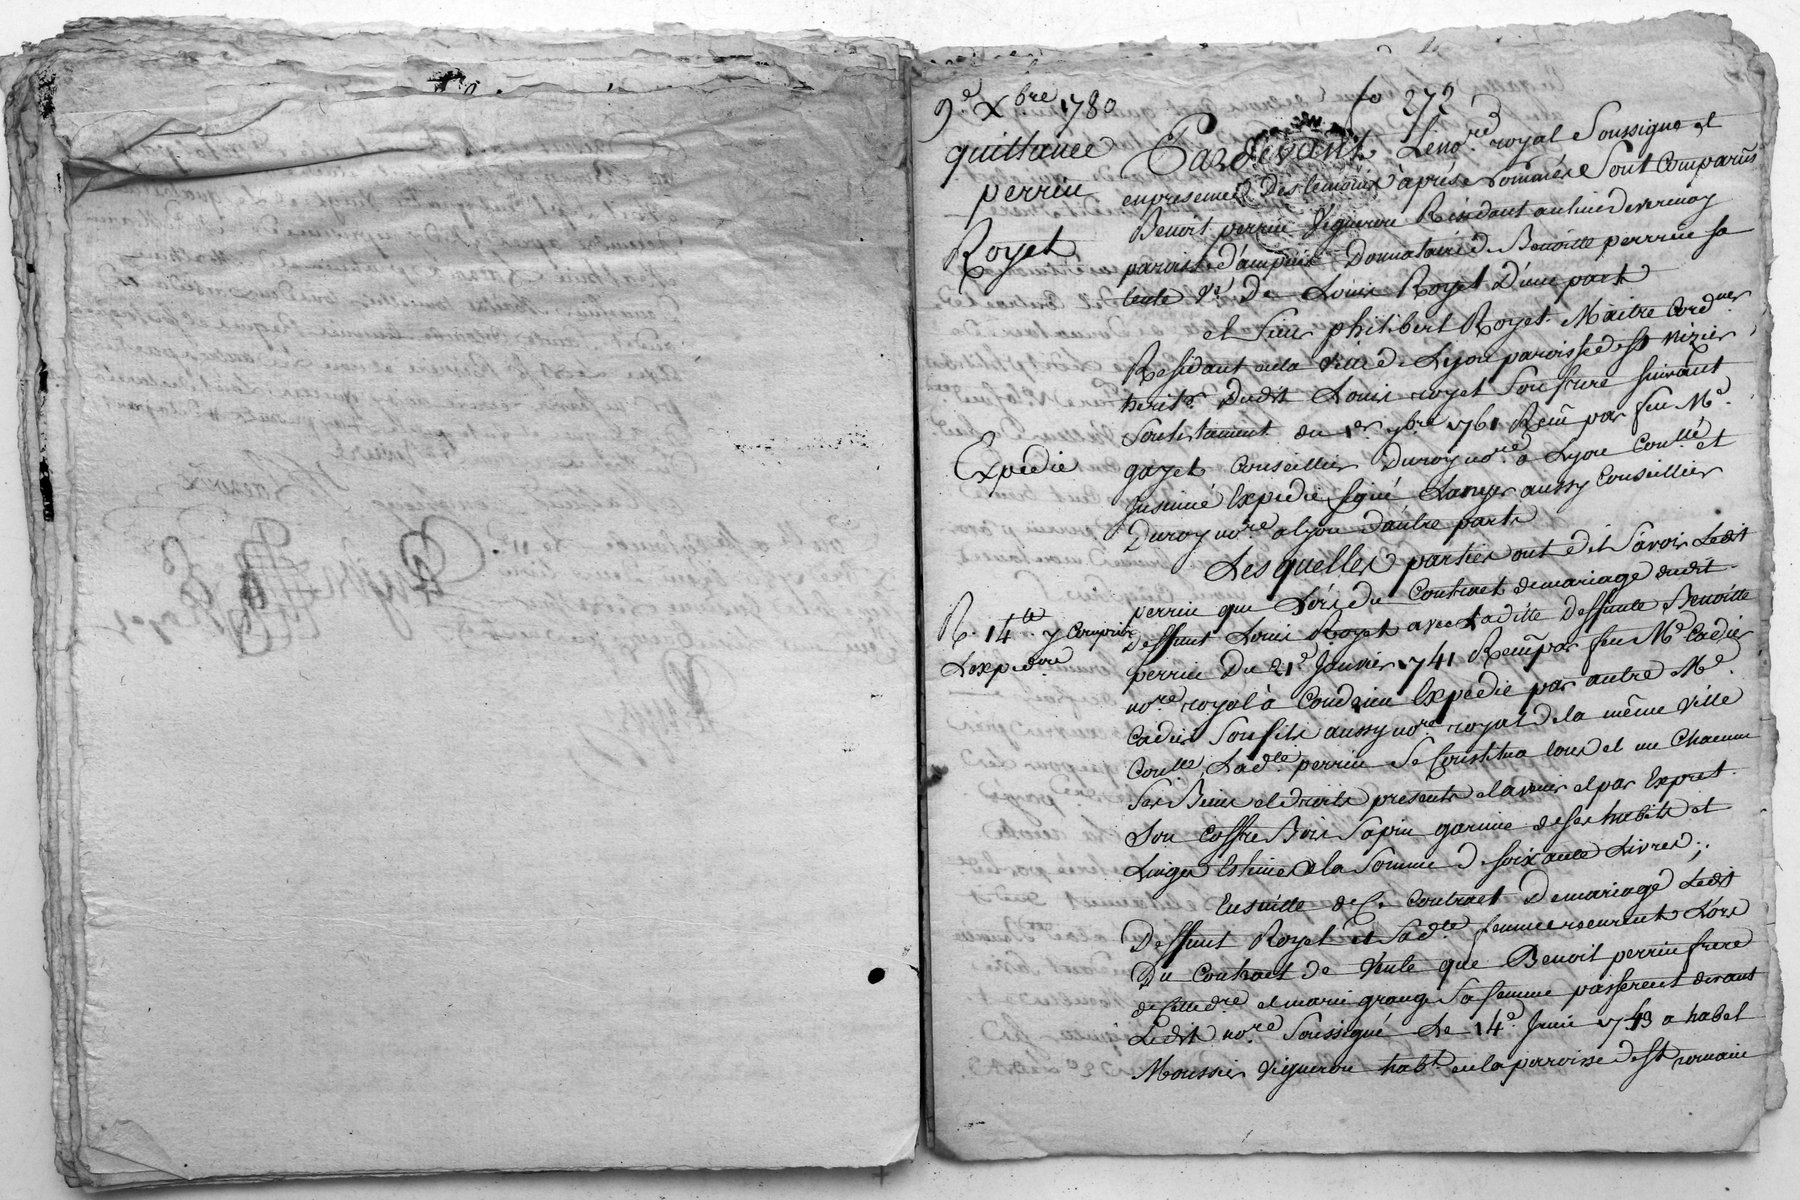 9.e Xbre 1780
quittance
perrin
Royet
Expedie
R. 14tt y Compris
Lexpedre
fo 272
Pardevant Le nore royal Soussigné et
en presence des temoins après nommés Sont Comparus
Benoit perrin Vigneron Residant au lieu de verenay
paroisse d'ampuis Donnataire de Benoitte perrin sa
tente Ve De Louis Royet D'une part
et Sieur philibert Royet Maitre Cordner
Residant en la Ville de Lyon paroisse de st nizier
heritr Dudit Louis royet Son frere suivant
Son testament du 1er 7bre 1761 Reçu par feu Me
gayet Conseiller Du roy nore a Lyon Conllé et
Insinué Expedié signé Lanyer aussy Conseiller
Du roy nore a lyon d'autre part
Lesquelles parties ont dit Savoir Ledit
perrin que Lors du Contract de mariage dudit
Deffunt Louis Royet avec Laditte Deffunte Benoitte
perrin Du 21e Janvier 1741 Reçu par feu Me Cadier
nore royal à Condrieu Expedié par autre Me
Cadier Son fils aussy nore royal de la même Ville
Conllé, Ladlle perrin Se Constitua tous et un Chacun
Ses Biens et droits presents et avenir et par Exprest
Son Coffre Bois Sapin garnie de ses habits et
Linges Estimés a la Somme de soixante Livres;
Ensuitte de Ce Contract De mariage Ledit
Deffunt Royet et Sadte femme Lors
Du Contract de Vente que Benoit perrin frere
de Cette dre et marie grange Sa femme passerent devant
Ledit nore Soussigné Le 14e Juin 1743 a habel
Moussier Vigneron habt en la paroisse de st romain